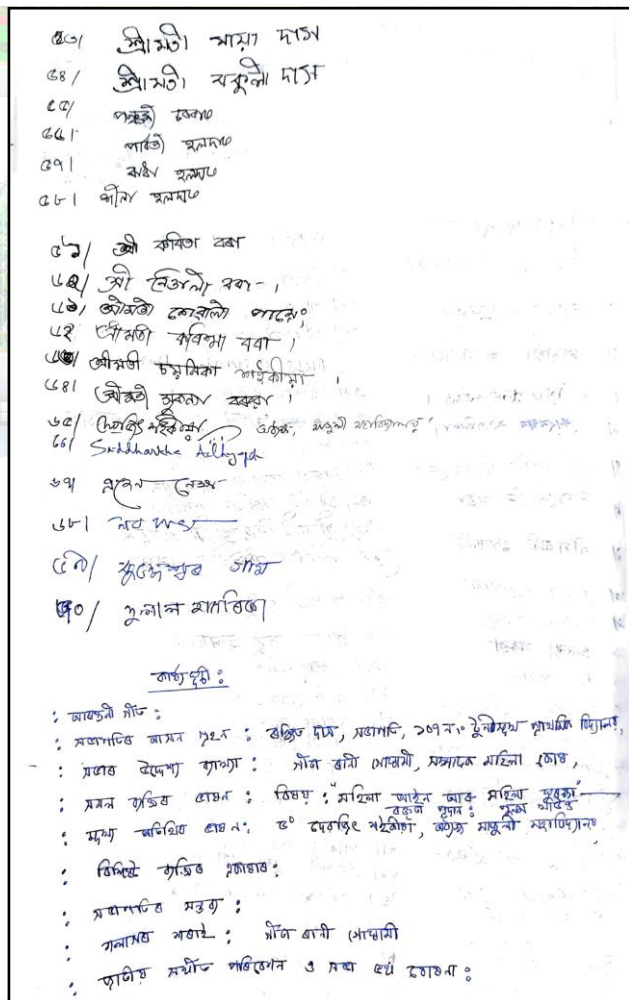 ৫৩/ শ্ৰীমতী মায়া দাস
৫৪/ শ্ৰীমতী বকুলী দাস
৫৫/
৫৬। পাৰ্বতী হলদাৰ
৫৭। হলদাৰ
৫৮। শীলা হলদাৰ
৫৯/ শ্ৰী কবিতা বৰা
৬০/ শ্ৰী বৰা-।
৬১/ শ্ৰীমতী পায়েং
৬২ শ্ৰীমতী বৰা ।
৬৩/ শ্ৰীমতী চয়নিকা শইকীয়া ।
৬৪। শ্ৰীমতী বৰুৱা ।
৬৫/ দেৱজিৎ শইকীয়া অধ্যক্ষ, মাজুলী মহাবিদ্যালয়
৬৬/ Siddhartha
৬৭/
৬৮। নব দাস
৬৯/
৭০/ দুলাল হাজৰিকা
কাৰ্য্যসূচী :
: আৰম্ভনী গীত :
: সভাপতিৰ আসন গ্ৰহন : ৰঞ্জিত দাস, সভাপতি, ১৩৭ নং প্ৰাথমিক বিদ্যালয়,
: সভাৰ উদ্দেশ্য ব্যাখ্যা : গীতা ৰানী গোস্বামী, সম্পাদক মহিলা কোষ,
: সমল ব্যক্তিৰ ভাষন : বিষয় : "মহিলা আইন আৰু মহিলা সুৰক্ষা"
বক্তৃতা প্ৰদান :
: মুখ্য অতিথিৰ ভাষন : ড° দেৱজিৎ শইকীয়া, অধ্যক্ষ মাজুলী মহাবিদ্যালয়
: বিশিষ্ট ব্যক্তিৰ :
: সভাপতিৰ মন্তব্য :
: শলাগৰ শৰাই : গীতা ৰানী গোস্বামী
: জাতীয় সংগীত পৰিবেশন ও সভা ভংগ ঘোষনা :